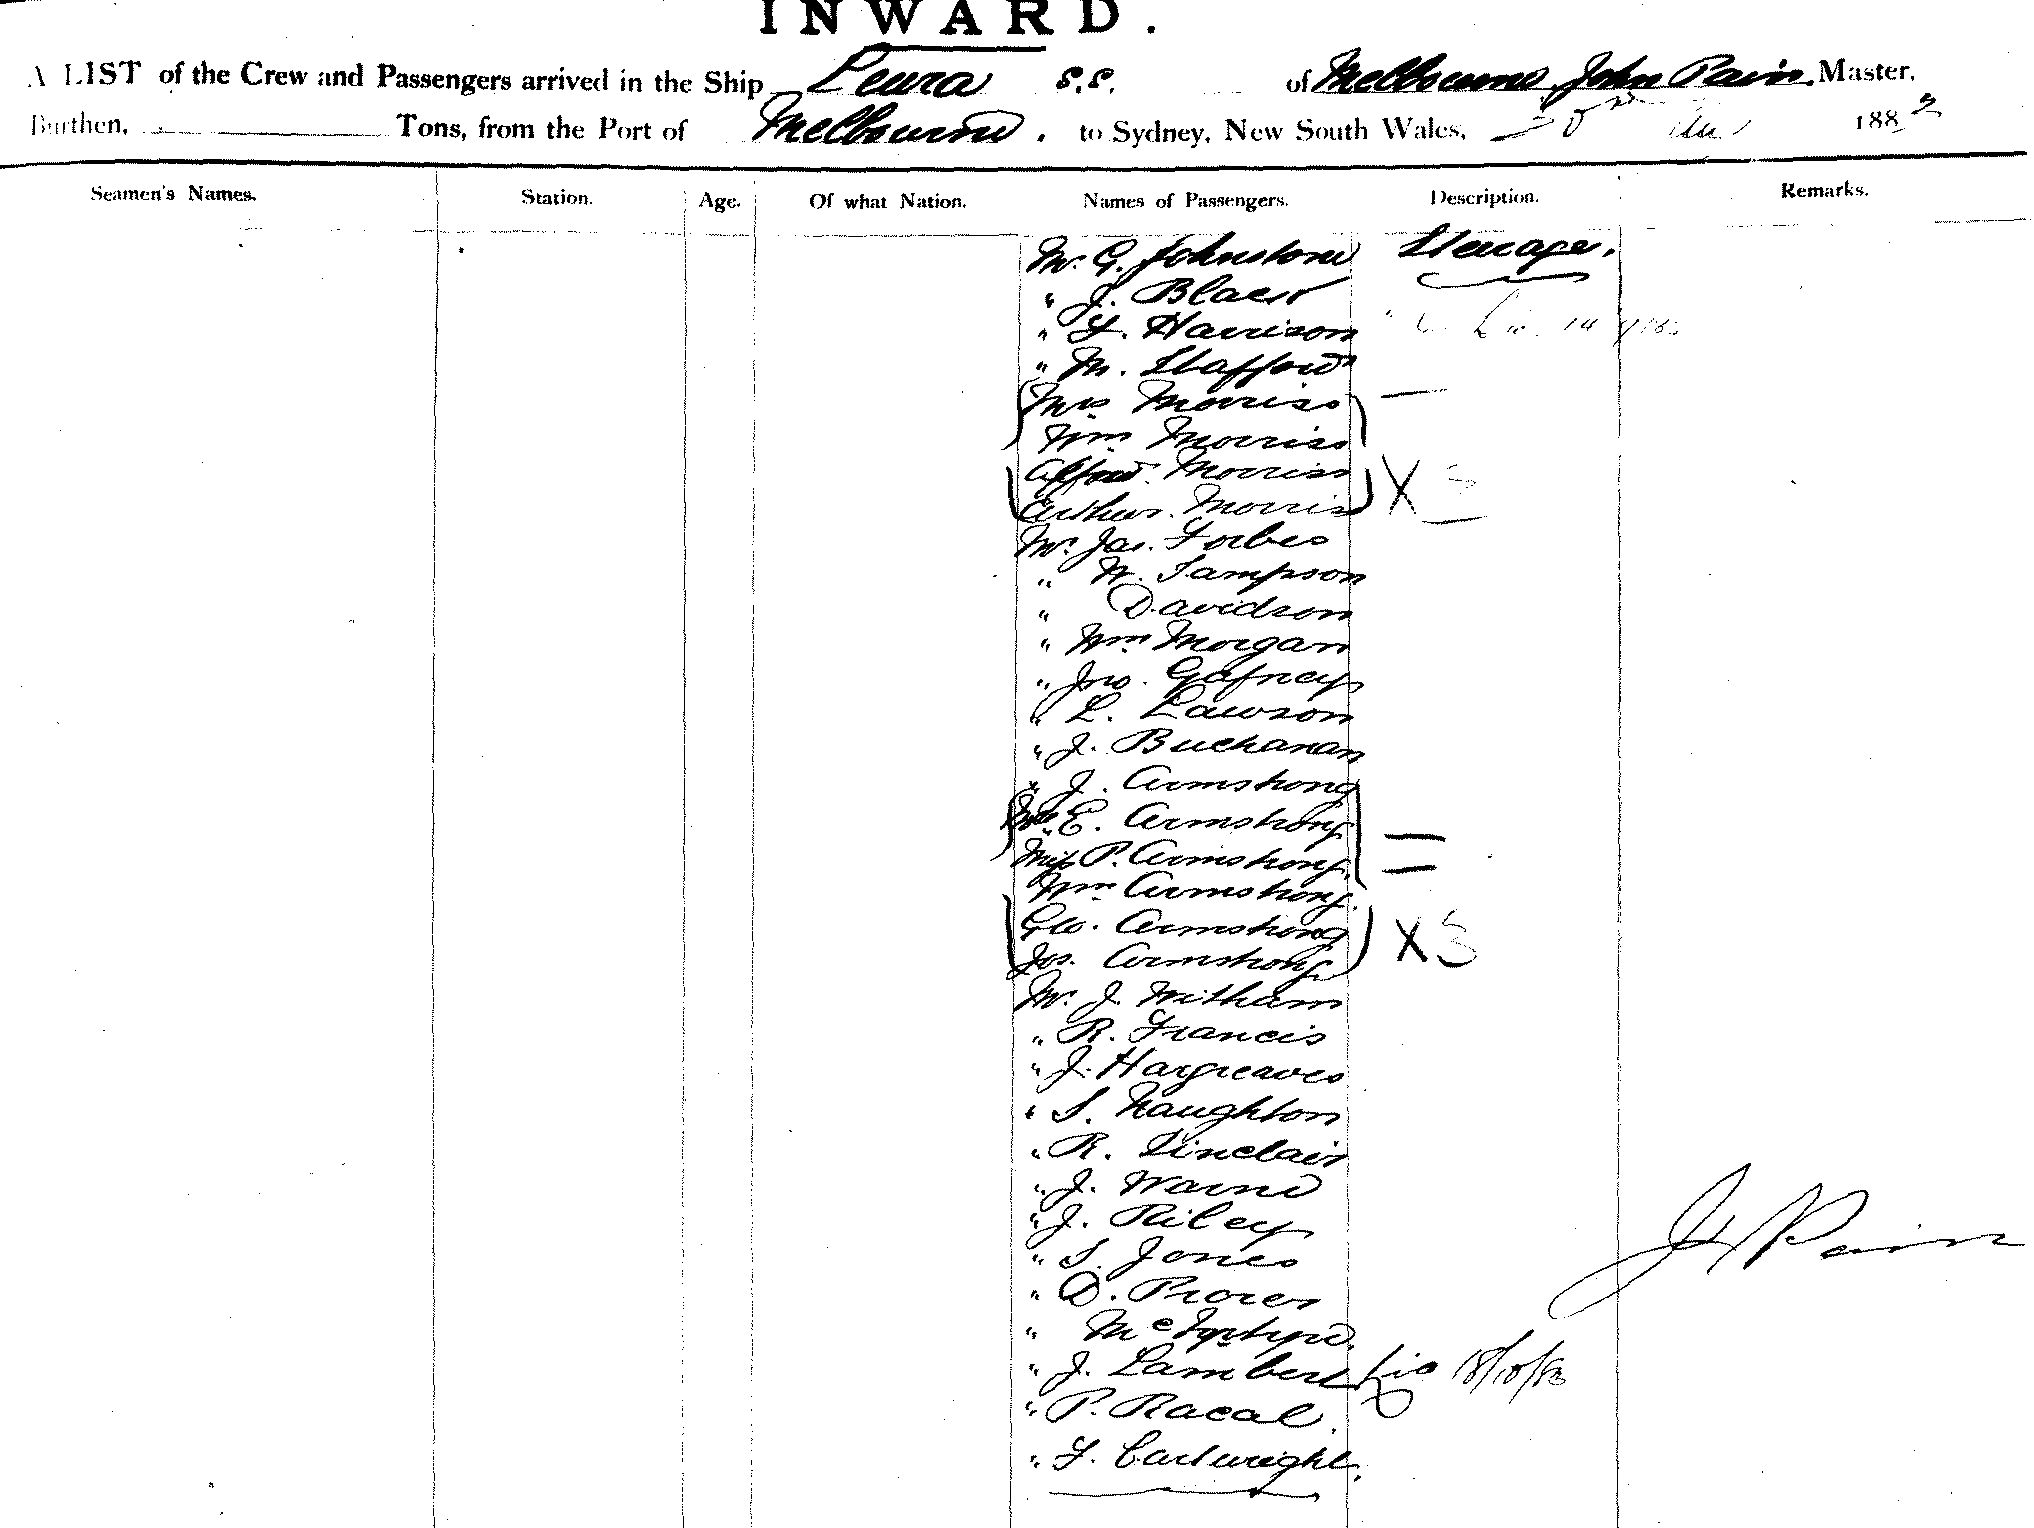 INWARD.
A LIST of the Crew and Passengers arrived in the Ship Leura S.S. of Melbourne John Pain Master,
Burthen, Tons, from the Port of Melbourne. to Sydney, New South Wales, 188
Seamen's Names. Station. Age. Of what Nation. Names of Passengers. Description. Remarks.
Mr. G. Johnstone Steerage.
" J. Blair
" F. Harrison
" M. Stafford
Mrs Morriss
Wm Morriss
Alfred Morriss X 3
Arthur Morriss
Mr. Jas. Forbes
" W. Sampson
" Davidson
" Wm Morgan
" Jno. Gafney
" L. Lawson
" J. Buchanan
" J. Armstrong
E. Armstrong
Miss P. Armstrong
Wm Armstrong
Geo. Armstrong X 3
Jos. Armstrong
Mr. J. Witham
" R. Francis
" J. Hargreaves
" S. Naughton
" R. Sinclair
" J. Warne
" J. Riley
" S. Jones
" D.
" McIntyre
" J. Lambert
" P. Racal
" F. Cartwright
J Pain